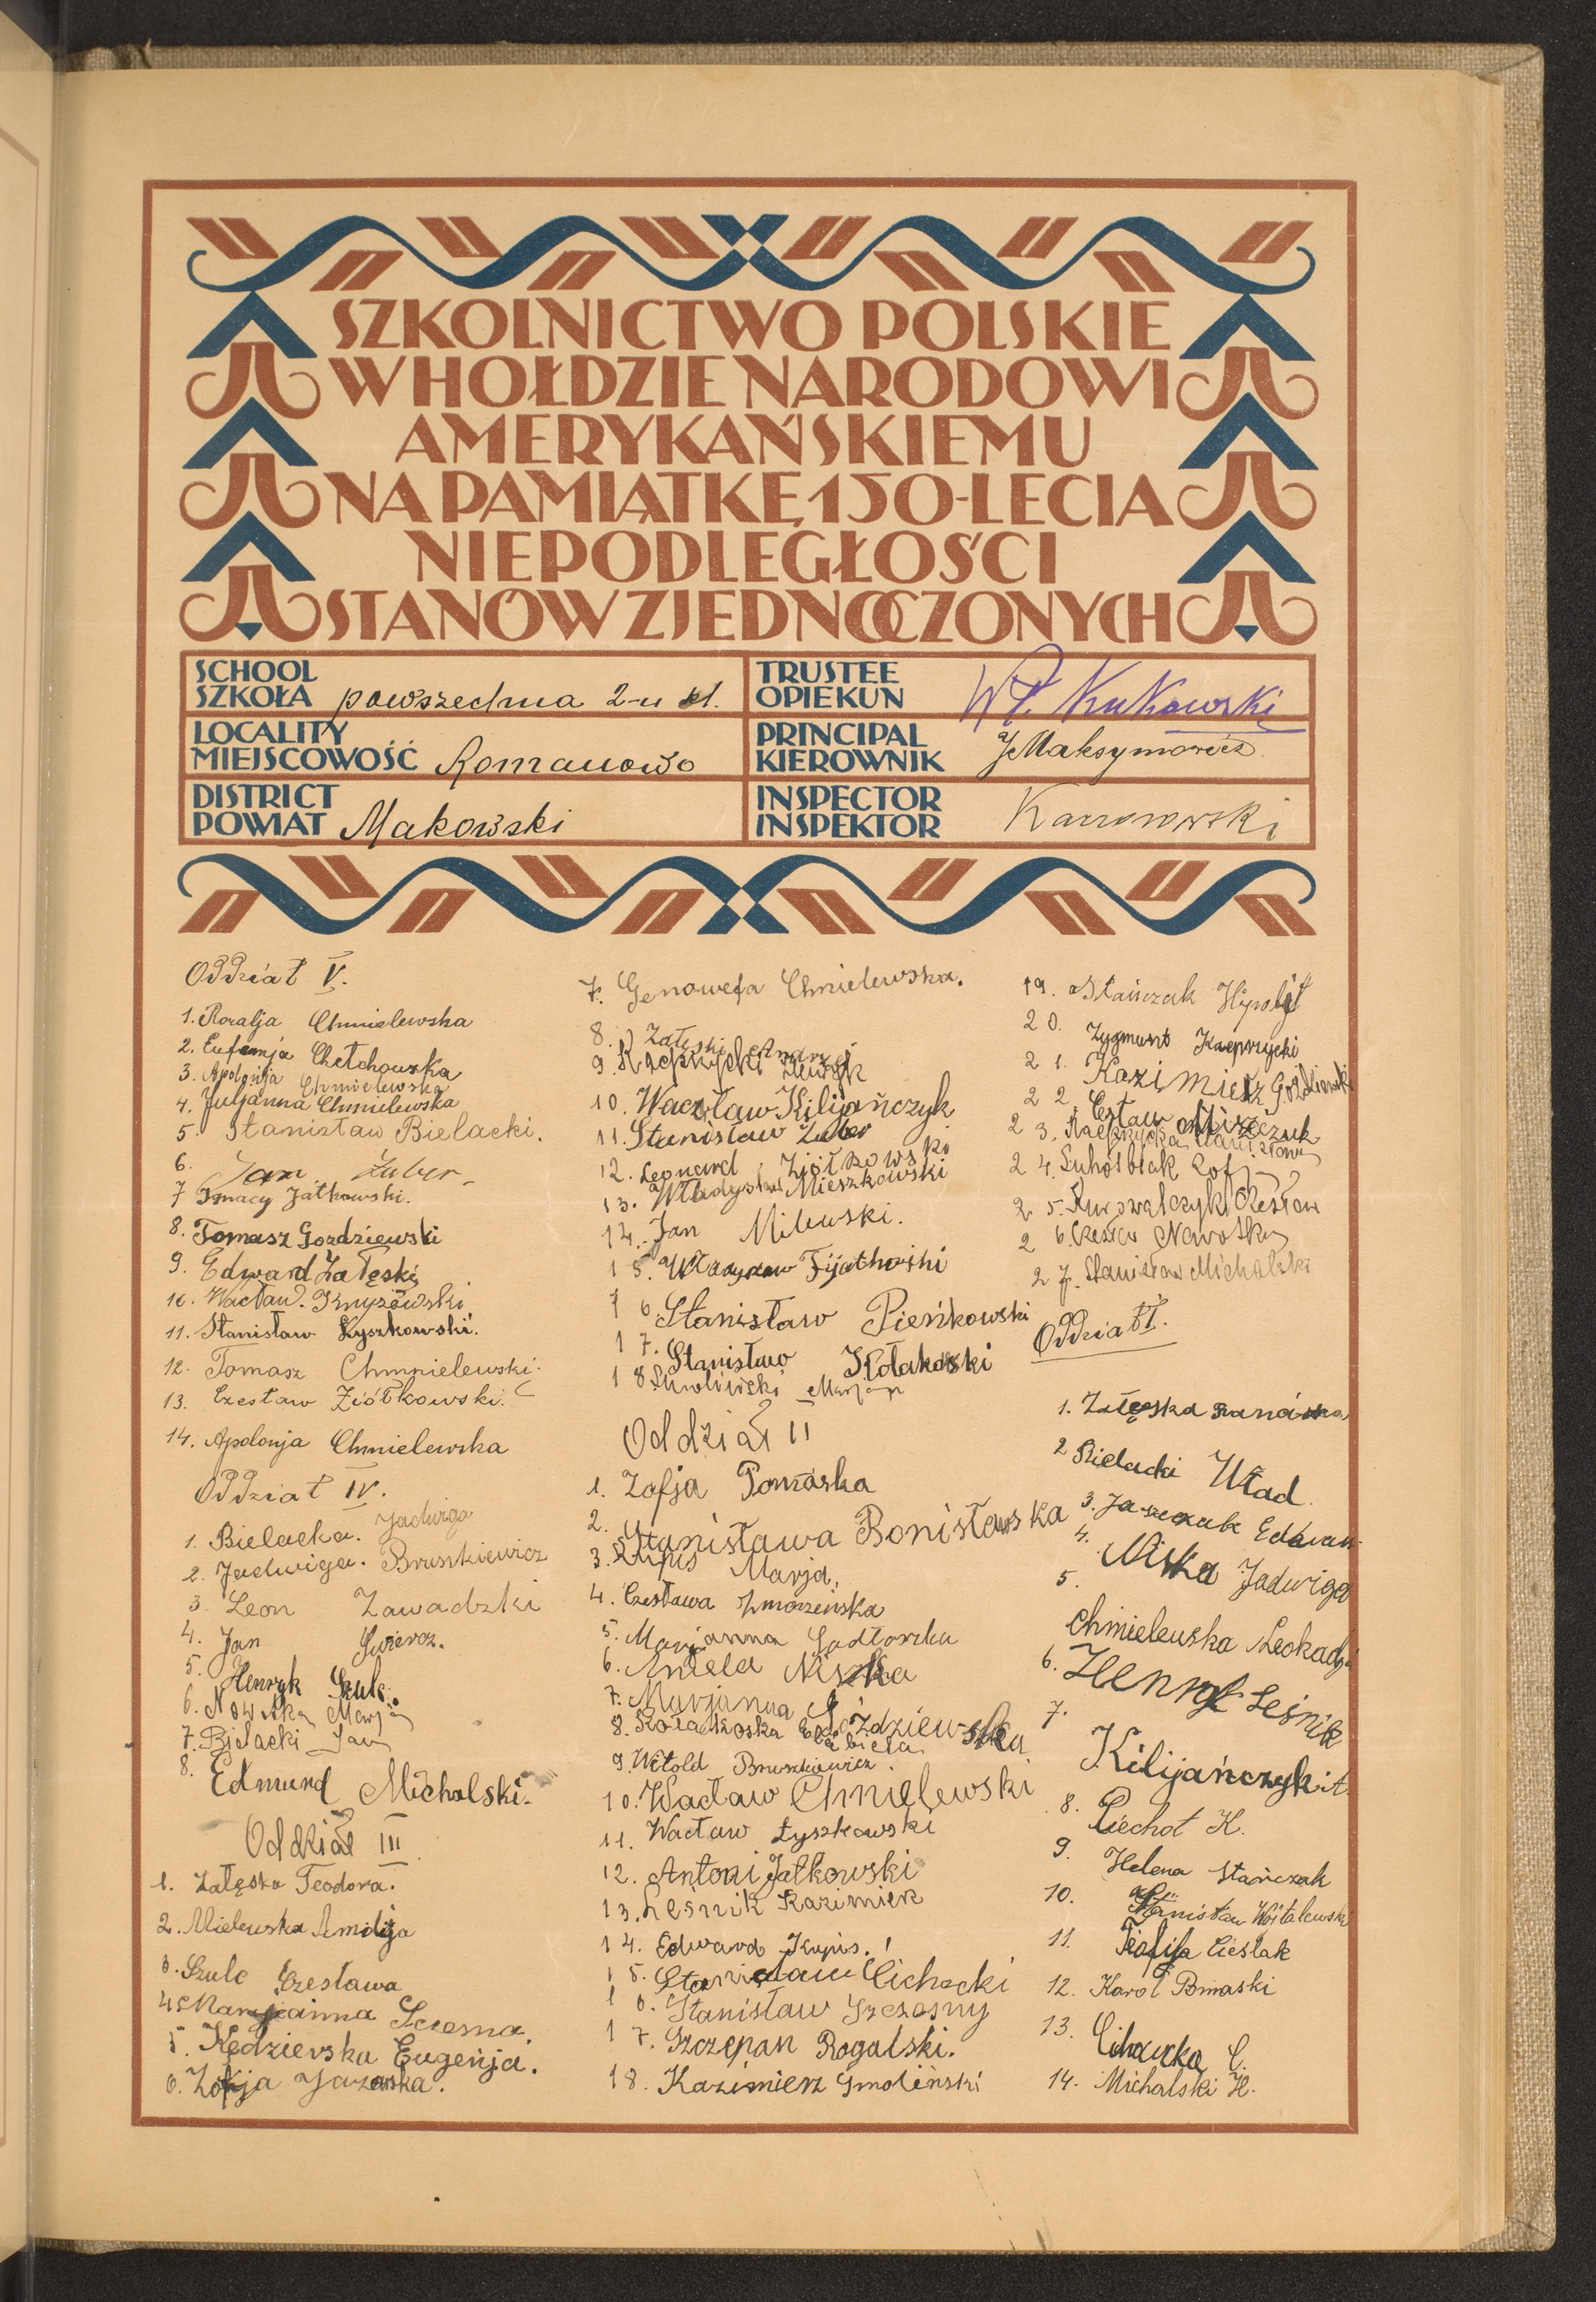 SZKOLNICTWO POLSKIE
W HOŁDZIE NARODOWI
AMERYKAŃSKIEMU
NA PAMIĄTKĘ 150-LECIA
NIEPODLEGŁOŚCI
STANÓW ZJEDNOCZONYCH
SCHOOL
SZKOŁA powszechna 2-u kl.
TRUSTEE
OPIEKUN Wł. Kukowski
LOCALITY
MIEJSCOWOŚĆ Romanowo
PRINCIPAL
KIEROWNIK J Maksymowicz
DISTRICT
POWIAT Makowski
INSPECTOR
INSPEKTOR
Oddział V.
1. Rozalja Chmielewska
2. Eufemja Chełchowska
3. Apolonja Chmielewska
4. Juljanna Chmielewska
5. Stanisław Bielacki.
6. Jan Żuber
7 Ignacy Jatkowski.
8. Tomasz Gozdziewski
9. Edward Załęski
10. Wacław
11. Stanisław Łyszkowski.
12. Tomasz Chmnielewski.
13. Czesław Ziółkowski.
14. Apolonja Chmielewska
Oddział IV.
1. Bielacka. Jadwiga
2. Jadwiga. Bruszkiewicz
3. Leon Zawadzki
4. Jan Świercz.
5. Henryk Szulc.
6. Nowotka Marja
7. Bielacki Jan
8. Edmund Michalski.
Oddział III
1. Załęska Teodora.
2. Milewska
3. Szulc Czesława
4. Marjanna
5. Kędzierska Eugenja.
6. Zofja
7. Genowefa Chmielewska.
8. Załęski Andrzej
9. Kacprzycki Henryk
10. Wacław Kilijańczyk
11. Stanisław Żuber
12. Leonard Ziółkowski
13. Władysław Mieszkowski
14. Jan Milewski.
15. Władysław Fijałkowski
16. Stanisław Pieńkowski
17. Stanisław Kołakowski
18. Smoliński Marjan
Oddział II
1. Zofja Pomaska
2. Stanisława Bonisławska
3. Krupis Marja,
4. Czesława
5. Marjanna
6. Aniela Niska
7. Marjanna Goździewska
8. Kołakoska Elżbieta
9. Witold Bruszkiewicz
10. Wacław Chmielewski
11. Wacław Łyszkowski
12. Antoni Jatkowski
13. Leśnik Kazimierz
14. Edward Krupis.
15. Stanisław Cichocki
16. Stanisław Szczesny
17. Szczepan Rogalski.
18. Kazimierz Smoliński
19. Stańczak Hipolit
20. Zygmunt Kacprzycki
21. Kazimierz Goździewski
22. Cesław
23. Kacprzycka
24. Zofja
25. Czesław
26. Czesław Nowotka
27. Stanisław Michalski
Oddział I.
1. Załęska
2 Bielacki Wład.
3. Jaszczuk Edwar
4. Niska Jadwiga
5. Chmieleuska Leokadja
6. Henryk Leśnik
7. Kilijańczyk A.
8. Ciechot K.
9. Helena Stańczak
10. Stanisław Wojtalewski
11. Teofila Cieślak
12. Karol Pomaski
13. C.
14. Michalski H.